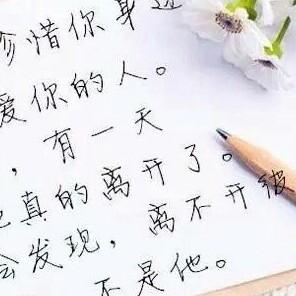 珍惜你身边
爱你的人。
有一天
，真的离开了。
会发现，离不开彼
不是他。